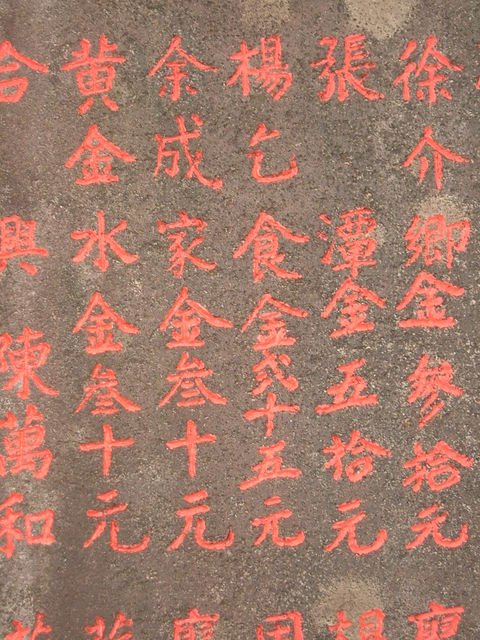 徐介卿金參拾元
張潭金五拾元
楊乞食金弍十五元
余成家金叁十元
黄金水金叁十元
合興陳萬和